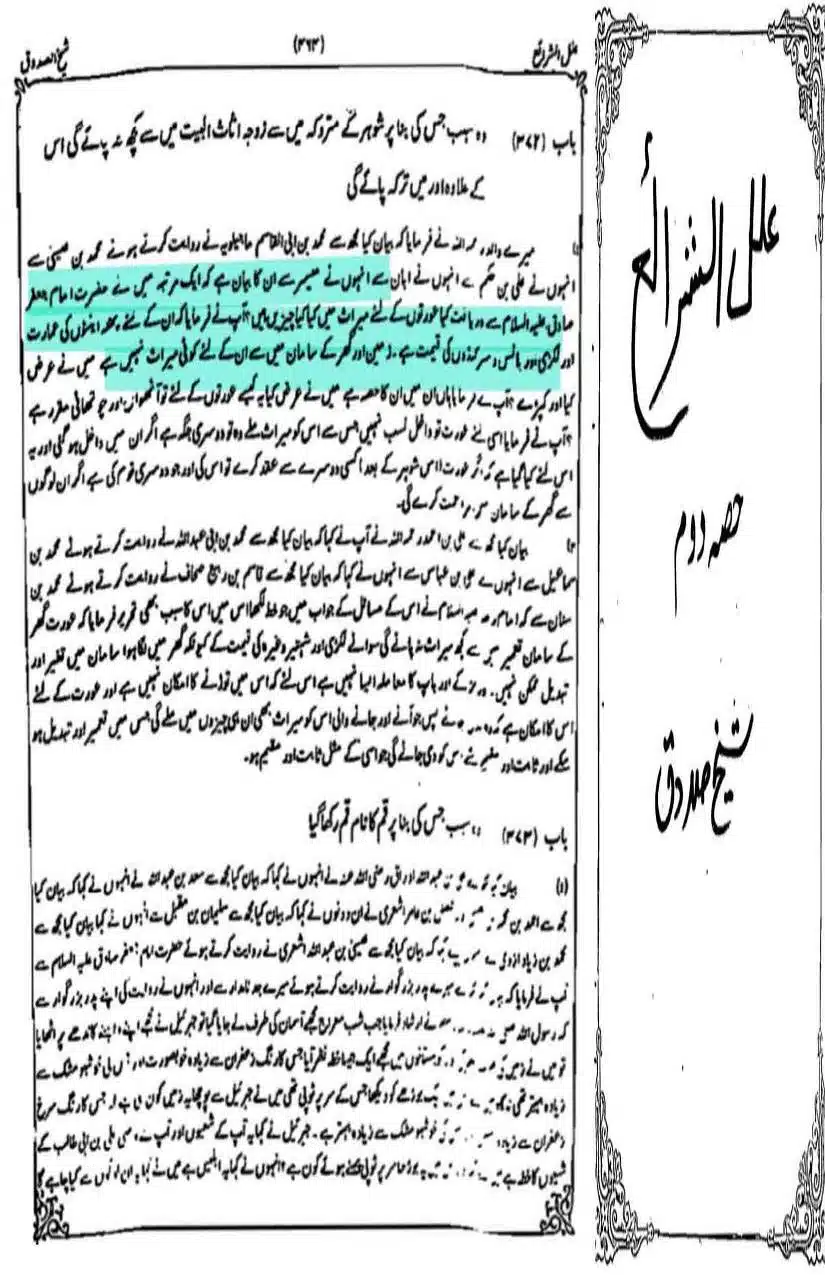 علل الشرائع
(۳۶۳)
شیخ الصدوق
باب (۳۷۲) وہ سبب جس کی بنا پر شوہر کے متروکہ میں سے زوجہ اثاث البیت میں سے کچھ نہ پائے گی اس
کے علاوہ اور میں ترکہ پائے گی
میرے والد رحمہ اللہ نے فرمایا کہ بیان کیا مجھ سے محمد بن ابی القاسم ماجیلویہ نے روایت کرتے ہوئے محمد بن عیسیٰ سے
انہوں نے علی بن حکم سے انہوں نے ابان سے انہوں نے میسر سے ان کا بیان ہے کہ ایک مرتبہ میں نے حضرت امام جعفر
صادق علیہ السلام سے دریافت کیا عورتوں کے لئے میراث میں کیا کیا چیزیں ہیں؟ آپ نے فرمایا کہ ان کے لئے پختہ اینٹوں کی عمارت
اور لکڑی اور بانس و سرکنڈوں کی قیمت ہے۔ زمین اور گھر کے سامان میں سے ان کے لئے کوئی میراث نہیں ہے میں نے عرض
کیا اور کپڑے؟ آپ نے فرمایا ہاں ان میں ان کا حصہ ہے میں نے عرض کیا یہ کیسے عورتوں کے لئے تو آٹھواں اور چوتھائی مقرر ہے
؟ آپ نے فرمایا اس لئے عورت تو داخل نسب نہیں جس سے اس کو میراث ملے وہ تو دوسری جگہ سے اگر ان میں داخل ہو گئی اور یہ
اس لئے کیا گیا ہے کہ عورت اس شوہر کے بعد اگر کسی دوسرے سے عقد کرے تو اس کی اور جو دوسری قوم کی ہے اگر ان لوگوں
سے گھر کے سامان میں کرے گی۔
بیان کیا مجھ سے علی بن احمد رحمہ اللہ نے آپ نے کہا کہ بیان کیا مجھ سے محمد بن ابی عبداللہ نے روایت کرتے ہوئے محمد بن
اسماعیل سے انہوں نے علی بن عباس سے انہوں نے کہا کہ بیان کیا مجھ سے قاسم بن ربیع صحاف نے روایت کرتے ہوئے محمد بن
سنان سے کہ امام علیہ السلام نے اس کے مسائل کے جواب میں جو خط لکھا اس میں اس کا سبب بھی تحریر فرمایا کہ عورت گھر
کے سامان تعمیر میں سے کچھ میراث نہ پائے گی سوائے لکڑی اور شہتیر وغیرہ کی قیمت کے کیونکہ گھر میں لگا ہوا سامان میں تغیر اور
تبدیل ممکن نہیں۔ اور باپ کا معاملہ ایسا نہیں ہے اس لئے کہ اس میں توڑنے کا امکان نہیں ہے اور عورت کے لئے
اس کا امکان ہے پس جو آنے اور جانے والی اس کو میراث بھی ان ہی چیزوں میں ملے گی جس میں تعمیر اور تبدیل ہو
سکے اور ثابت اور مقیم کو دی جائے گی جو اسی کے مثل ثابت اور مقیم ہو۔
باب (۳۷۳) وہ سبب جس کی بنا پر قم کا نام قم رکھا گیا
(۱) بیان کیا عبداللہ وراق رضی اللہ عنہ نے انہوں نے کہا کہ بیان کیا مجھ سے سعد بن عبداللہ نے انہوں نے کہا کہ بیان کیا
مجھ سے احمد بن محمد بن عیسیٰ و فضل بن عامر اشعری نے ان دونوں نے کہا کہ بیان کیا مجھ سے سلیمان بن مقبل نے انہوں نے کہا بیان کیا مجھ سے
محمد بن زیاد ازدی نے کہ بیان کیا مجھ سے عیسیٰ بن عبداللہ اشعری نے روایت کرتے ہوئے حضرت امام جعفر صادق علیہ السلام سے
آپ نے فرمایا کہ میرے پدر بزرگوار نے روایت کرتے ہوئے میرے جد نامدار سے اور انہوں نے روایت کی اپنے پدر بزرگوار سے
کہ رسول اللہ صلی نے ارشاد فرمایا جب شب معراج مجھے آسمان کی طرف لے جایا گیا تو جبرئیل نے مجھے اپنے داہنے کاندھے پر اٹھایا
تو میں نے زمین مجھے ایک ایسا خطہ نظر آیا جس کا رنگ زعفران سے زیادہ خوبصورت اور اس کی خوشبو مشک سے
زیادہ بہتر تھی بوڑھے کو دیکھا جس کے سر پر ٹوپی تھی میں نے جبرئیل سے پوچھا یہ زمین کون سی ہے جس کا رنگ سرخ
زعفران سے زیادہ خوشبو مشک سے زیادہ بہتر ہے۔ جبرئیل نے کہا یہ آپ کے شیعوں اور آپ کے وصی علی بن ابی طالب کے
شیعوں کا خطہ ہے یہ بوڑھا سر پر ٹوپی پہنے ہوئے کون ہے؟ انہوں نے کہا یہ ابلیس ہے میں نے کہا یہ ان لوگوں سے کیا چاہے گا
علل الشرائع
حصہ دوم
شیخ صدوق